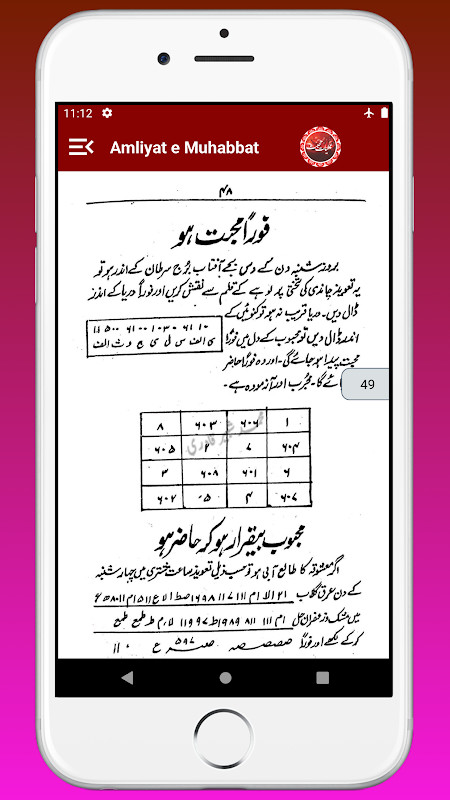 11:12
Amliyat e Muhabbat
۴۸
فوراً محبت ہو
بروز شنبہ دن کے دس بجے آفتاب برج سرطان کے اندر ہو تو
یہ تعویذ چاندی کی تختی پر لوہے کے قلم سے نقش کریں اور فوراً دریا کے اندر
ڈال دیں۔ دریا قریب نہ ہو تو کنوئیں کے
اندر ڈال دیں تو محبوب کے دل میں فوراً
محبت پیدا ہو جائے گی۔ اور وہ فوراً حاضر
ئے گا۔ مجرب اور آزمودہ ہے۔
49
۸ ۶۰۳ ۶۰۶ ۱
۶۰۵ ۲ ۷ ۶۰۴
۳ ۶۰۸ ۶۰۱ ۶
۶۰۲ ۵ ۴ ۶۰۷
محبوب بیقرار ہو کر حاضر ہو
اگر معشوقہ کا طالع آبی ہو تو حسب ذیل تعویذ ساعت مشتری میں چہار شنبہ
کے دن عرق گلاب
میں مشک و زعفران حل
کر کے لکھے اور فوراً